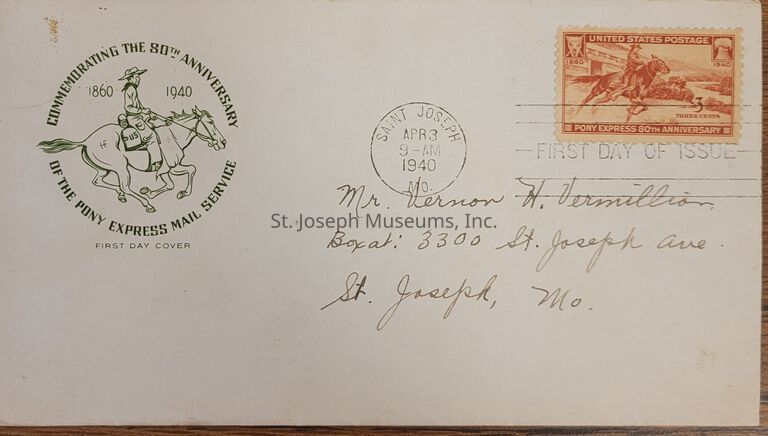 COMMEMORATING THE 80TH ANNIVERSARY
1860 1940
US
HF
OF THE PONY EXPRESS MAIL SERVICE
FIRST DAY COVER
SAINT JOSEPH
APR 3
9-AM
1940
MO.
UNITED STATES POSTAGE
1860 1940
3
THREE CENTS
PONY EXPRESS 80TH ANNIVERSARY
FIRST DAY OF ISSUE
Mr. Vernon H. Vermillion
St. Joseph Museums, Inc.
3300 St. Joseph Ave.
St. Joseph, Mo.